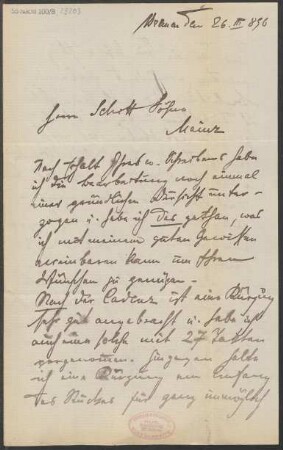 den 26. III 896
Herrn Schott Söhne
Mainz
Nach Erhalt Ihres w. Schreibens habe
ich die Bearbeitung noch einmal
einer gründlichen Durchsicht unter-
zogen u. habe ich das gethan, was
ich mit meinem guten Gewissen
vereinbaren kann um Ihren
Wünschen zu genügen.
Nach der Cadenz ist eine Kürzung
sehr gut angebracht u. habe ich
auch eine solche mit 27 Takten
vorgenommen. Hingegen halte
ich eine Kürzung am Anfang
des Stückes für ganz unmöglich